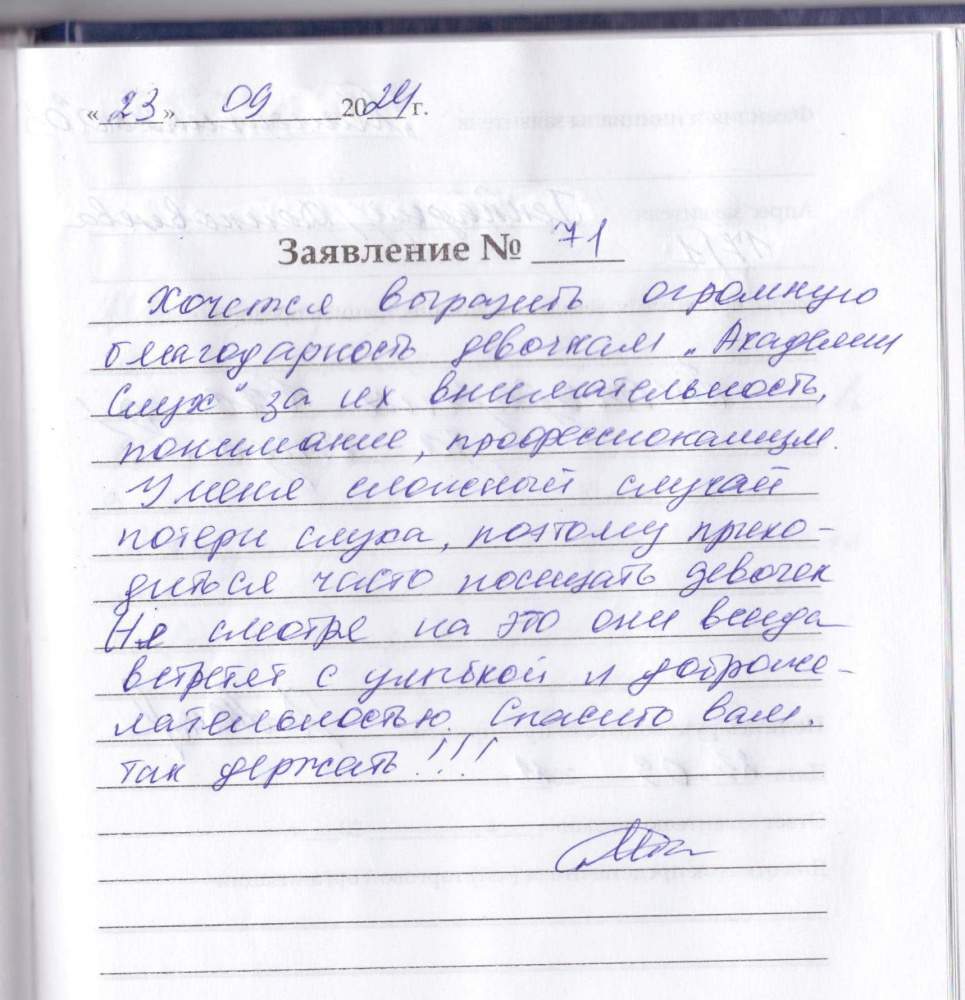 « 23 » 09 2024 г.
Заявление № 71
Хочется выразить огромную
благодарность девочкам „Академии
Слух" за их внимательность,
понимание, профессионализм.
У меня сложный случай
потери слуха, поэтому прихо-
диться часто посещать девочек
Не смотря на это они всегда
встретят с улыбкой и доброже-
лательностью. Спасибо вам.
так держать!!!